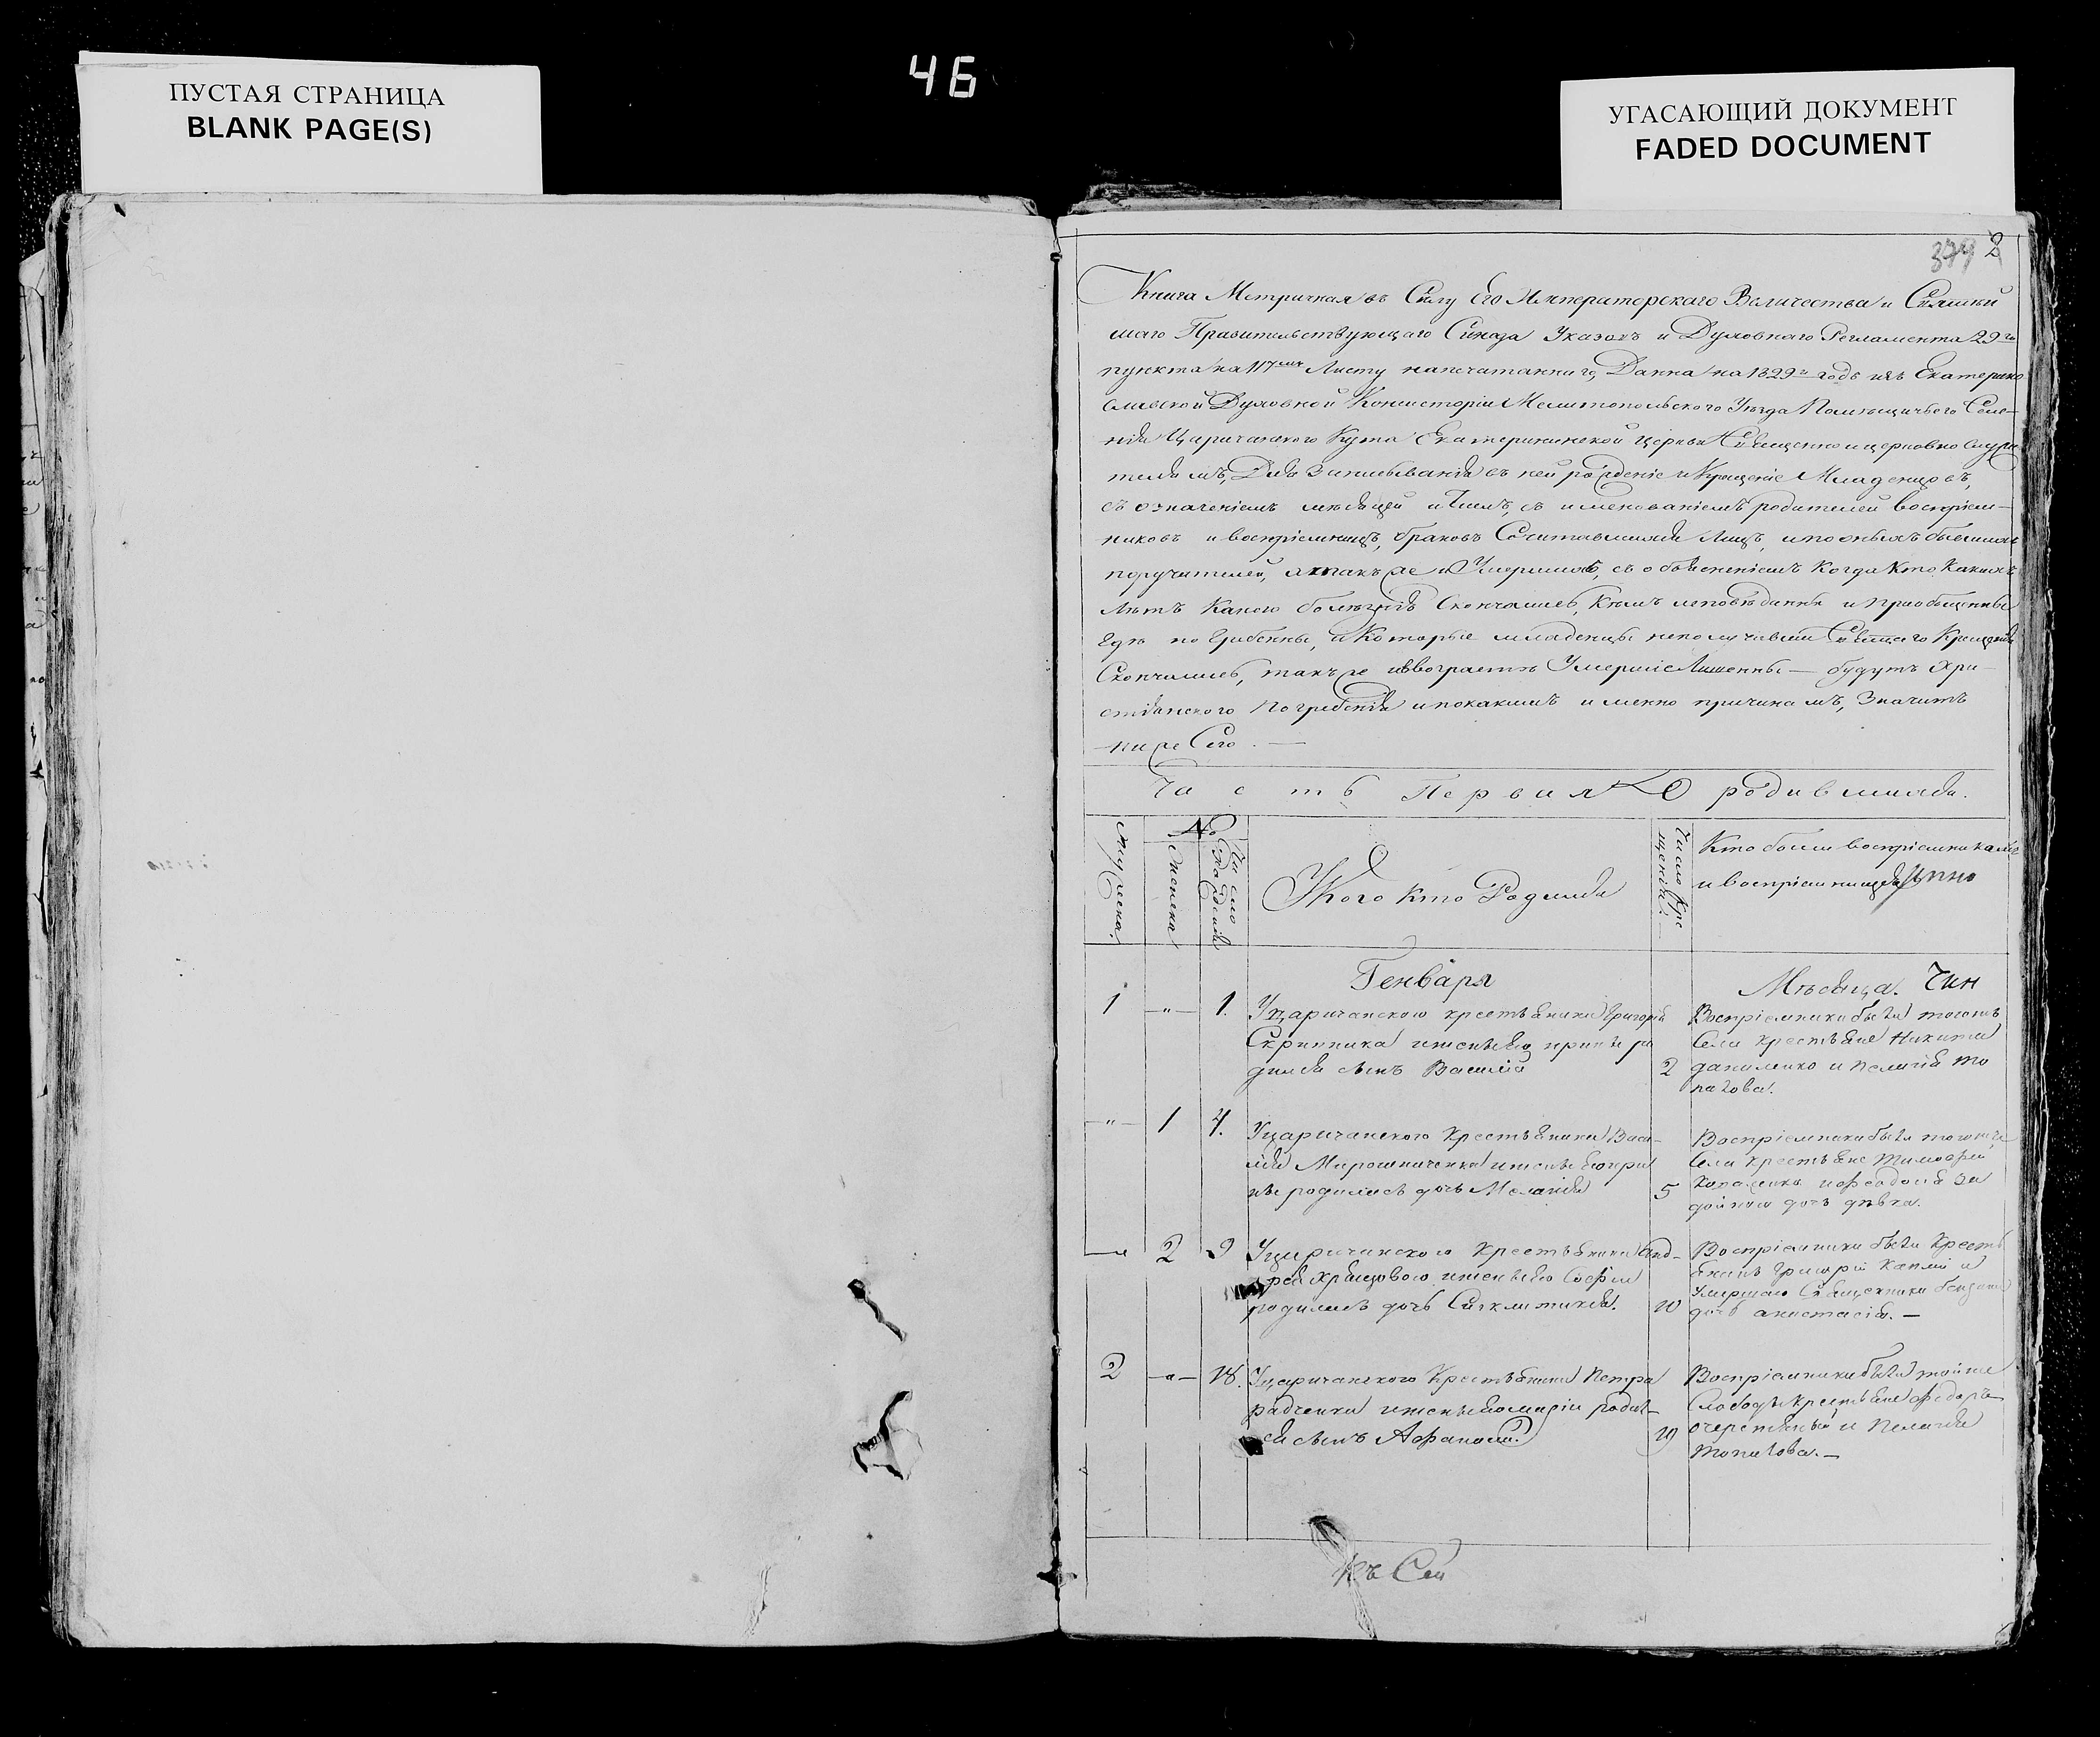 ПУСТАЯ СТРАНИЦА
BLANK PAGE(S)
46
УГАСАЮЩИЙ ДОКУМЕНТ
FADED DOCUMENT
2
Книга Метричная въ Силу Его Императорскаго Величества и
Правительствующаго Синода Указовъ и Духовнаго Регламента 29го
пункта на листу напечатаннаго, Данна на 1829й годъ изъ Екатерино
славской Духовной Консисторіи Мелитопольского Уѣзда Помѣщичьего Селе-
нія Царичанского Кута Екатерининской церкви Священно и церковно служи
телямъ, Для Записыванія въ ней рожденіе и Крещеніе Младенцовъ,
съ означеніемъ мѣсяцей и Числъ, съ именованіемъ родителей воспріем-
никовъ и воспріемницъ, браковъ Сочитавшихся Лицъ, и по оныхъ бывшихъ
поручителей, а также и Умершихъ, съ объясненіемъ Когда Кто Какихъ
лѣтъ Какою болѣзнію Скончались, Кѣмъ исповѣданны и пріобщенны
Гдѣ погребенны, и Которые младенцы неполучивши Святаго Крещенія
Скончались, также извозрасте Умершіе Лишенны — будутъ Хри-
стіянского Погребенія и по какимъ имянно причинамъ, Значитъ
ниже Сего. —
Часть Первая О родившихся.
№
Мужеска.
Женска
Число рожденія
У Кого кто Родился
Число Кре
щенія.
Кто были воспріемниками
и воспріемницы
Генваря
Мѣсяца. Чин
1 -"- 1. У царичанского крестьянина Григорія
Скрипника и жены его ирины ро
дился сынъ Василій
2
Воспріемники были тогожъ
Села крестьяне Никита
даниленко и пелагія то
палова.
-"- 1 4. У царичанского крестьянина Васи-
лія Мирошниченка и жены его ири
ны родилась дочь Меланія
5
Воспріемники были тогоже
Села крестьяне Тимофей
и феодосія
дочь дѣвка.
2 9 У царичанского крестьянина Анд-
рея и жены его Софіи
родилась дочь Синклитикія.
10
Воспріемники были кресть
янинъ Григорій и
умершаго Священника
дочь анастасія. —
2 -"- 18. У царичанского крестьянина Петра
радченка и жены его маріи родил-
ся сынъ Афанасій.
19
Воспріемники были тойже
Слободы крестьяне федоръ
и Пелагія
топалова. —
Къ Сей